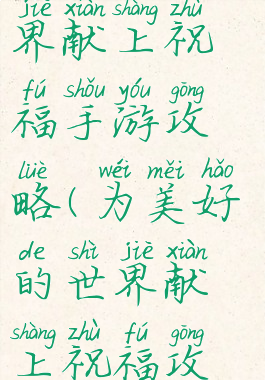 jiè xiàn shàng zhù
界献上祝
fú shǒu yóu gōng
福手游攻
lüè wéi měi hǎo
略(为美好
de shì jiè xiàn
的世界献
shàng zhù fú gōng
上祝福攻